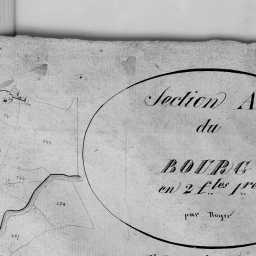 Section A
du
BOURG
en 2 f.lles 1.re
par Roger